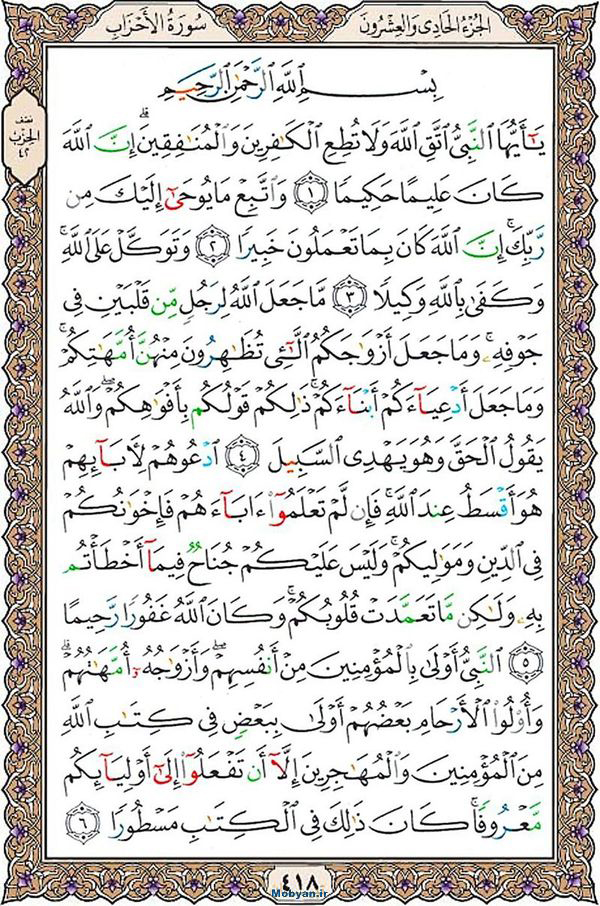 الجُزءُ الحَادِى وَالعِشرُونَ
سُورَةُ الأَحْزَابِ
نصف
الحِزب
٤٢
بِسْمِ ٱللَّهِ ٱلرَّحْمَٰنِ ٱلرَّحِيمِ
يَـٰٓأَيُّهَا ٱلنَّبِىُّ ٱتَّقِ ٱللَّهَ وَلَا تُطِعِ ٱلْكَـٰفِرِينَ وَٱلْمُنَـٰفِقِينَ ۗ إِنَّ ٱللَّهَ
كَانَ عَلِيمًا حَكِيمًا ١ وَٱتَّبِعْ مَا يُوحَىٰٓ إِلَيْكَ مِن
رَّبِّكَ ۚ إِنَّ ٱللَّهَ كَانَ بِمَا تَعْمَلُونَ خَبِيرًا ٢ وَتَوَكَّلْ عَلَى ٱللَّهِ ۚ
وَكَفَىٰ بِٱللَّهِ وَكِيلًا ٣ مَّا جَعَلَ ٱللَّهُ لِرَجُلٍ مِّن قَلْبَيْنِ فِى
جَوْفِهِۦ ۚ وَمَا جَعَلَ أَزْوَٰجَكُمُ ٱلَّـٰٓـِٔى تُظَـٰهِرُونَ مِنْهُنَّ أُمَّهَـٰتِكُمْ ۚ
وَمَا جَعَلَ أَدْعِيَآءَكُمْ أَبْنَآءَكُمْ ۚ ذَٰلِكُمْ قَوْلُكُم بِأَفْوَٰهِكُمْ ۖ وَٱللَّهُ
يَقُولُ ٱلْحَقَّ وَهُوَ يَهْدِى ٱلسَّبِيلَ ٤ ٱدْعُوهُمْ لِـَٔابَآئِهِمْ
هُوَ أَقْسَطُ عِندَ ٱللَّهِ ۚ فَإِن لَّمْ تَعْلَمُوٓا۟ ءَابَآءَهُمْ فَإِخْوَٰنُكُمْ
فِى ٱلدِّينِ وَمَوَٰلِيكُمْ ۚ وَلَيْسَ عَلَيْكُمْ جُنَاحٌ فِيمَآ أَخْطَأْتُم
بِهِۦ وَلَـٰكِن مَّا تَعَمَّدَتْ قُلُوبُكُمْ ۚ وَكَانَ ٱللَّهُ غَفُورًا رَّحِيمًا
٥ ٱلنَّبِىُّ أَوْلَىٰ بِٱلْمُؤْمِنِينَ مِنْ أَنفُسِهِمْ ۖ وَأَزْوَٰجُهُۥٓ أُمَّهَـٰتُهُمْ ۗ
وَأُو۟لُوا۟ ٱلْأَرْحَامِ بَعْضُهُمْ أَوْلَىٰ بِبَعْضٍ فِى كِتَـٰبِ ٱللَّهِ
مِنَ ٱلْمُؤْمِنِينَ وَٱلْمُهَـٰجِرِينَ إِلَّآ أَن تَفْعَلُوٓا۟ إِلَىٰٓ أَوْلِيَآئِكُم
مَّعْرُوفًا ۚ كَانَ ذَٰلِكَ فِى ٱلْكِتَـٰبِ مَسْطُورًا ٦
٤١٨
Mobyan.ir